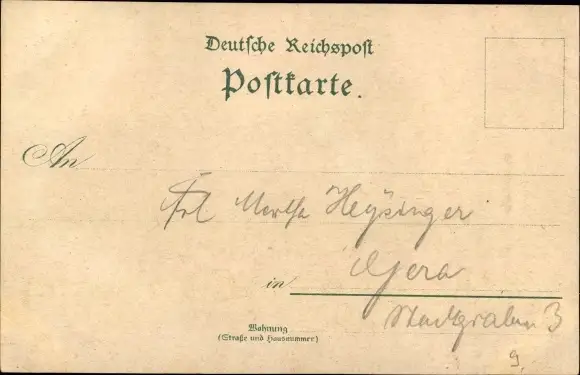 Deutsche Reichspost
Postkarte.
An
Frl Martha Heysinger
in Gera
Stadtgraben 3
Wohnung
(Straße und Hausnummer)
9.